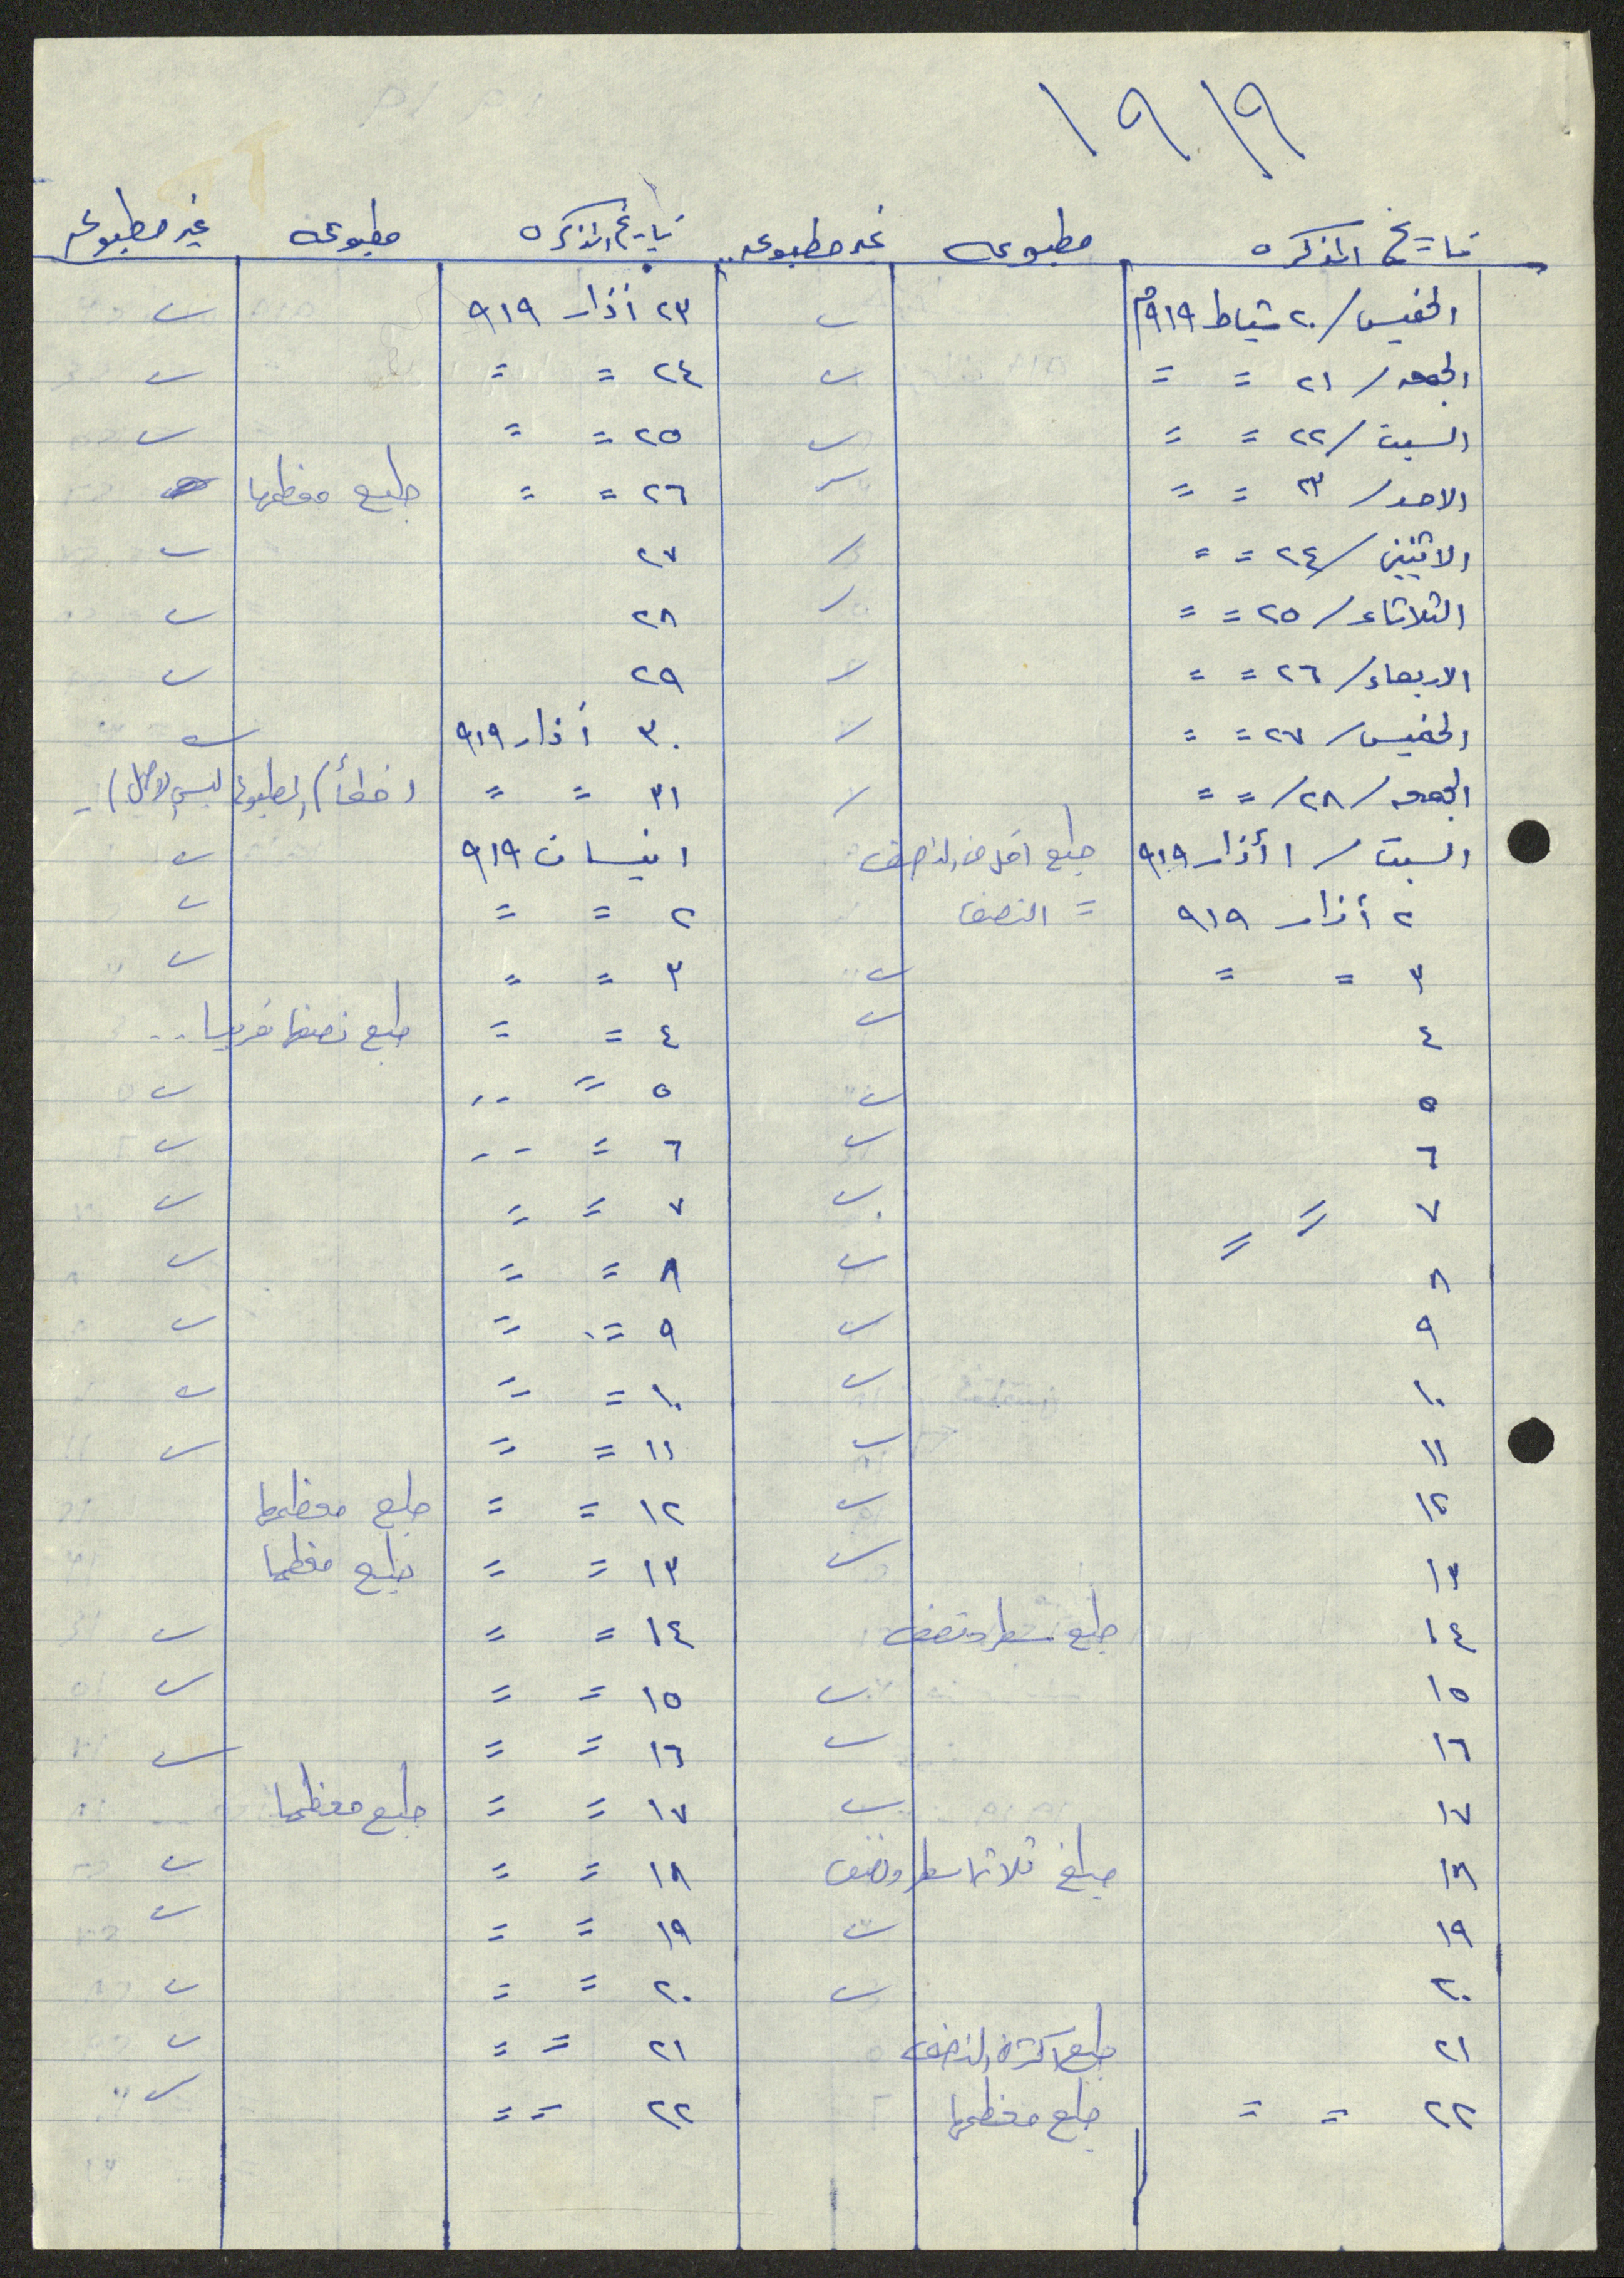 ١٩١٩
تاريخ المذكره مطبوعه غير مطبوعه تاريخ المذكره مطبوعه غير مطبوعه
الخميس/ ٢٠ شباط ٩١٩م ٢٣ أذار ٩١٩
الجمعه/ ٢١ = = ٢٤ = =
السبت/ ٢٢ = = ٢٥ = =
الاحد/ ٢٣ = = ٢٦ = = طبع معظمها
الاثنين/ ٢٤ = = ٢٧
الثلاثاء/ ٢٥ = = ٢٨
الاربعاء/ ٢٦ = = ٢٩
الخميس/ ٢٧ = = ٣٠ أذار ٩١٩
الجمعه/ ٢٨/ = = ٣١ = = (خطأ) المطبوعه ليس الاصل) -
السبت/ ١ أذار ٩١٩ طبع اقل من النصف ١ نيسان ٩١٩
٢ أذار ٩١٩ = النصف ٢ = =
٣ = = ٣ = =
٤ ٤ = = طبع نصفها تقريبا ..
٥ ٥ = =
٦ ٦ = =
٧ = = ٧ = =
٨ ٨ = =
٩ ٩ = =
١٠ ١٠ = =
١١ ١١ = =
١٢ ١٢ = = طبع معظمها
١٣ ١٣ = = طبع معظمها
١٤ طبع سطر ونصف ١٤ = =
١٥ ١٥ = =
١٦ ١٦ = =
١٧ ١٧ = = طبع معظمها
١٨ طبع ثلاثة اسطر ونصف ١٨ = =
١٩ ١٩ = =
٢٠ ٢٠ = =
٢١ طبع اكثر من النصف ٢١ = =
٢٢ = = طبع معظمها ٢٢ = =